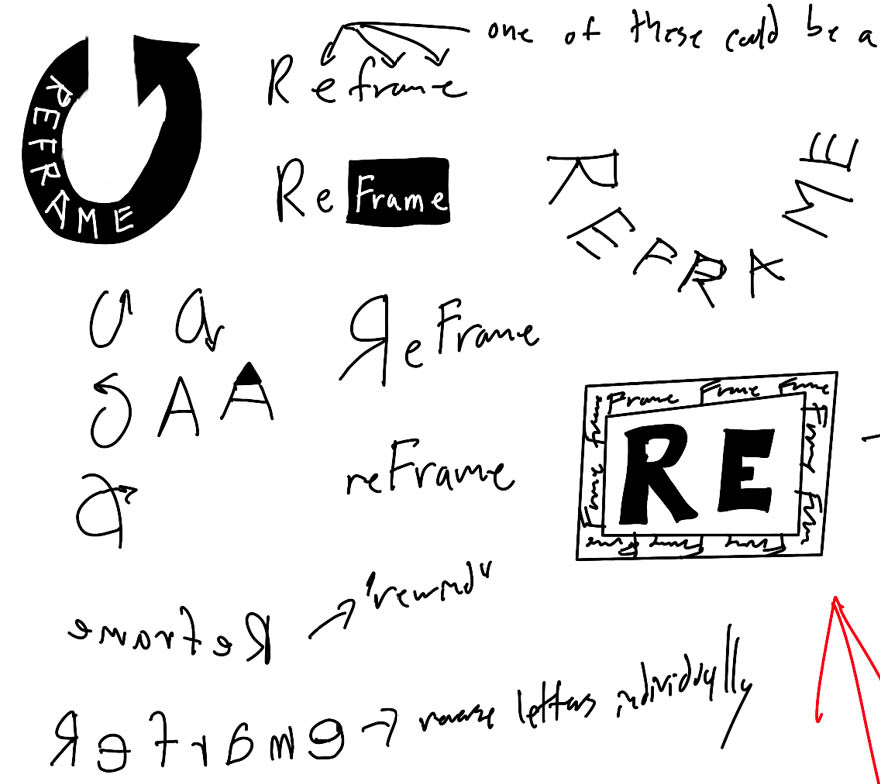 one of these could be a
Reframe
REFRAME
ReFrame
REFRAME
ReFrame
A A
Frame Frame Frame
Frame Frame
RE
Frame Frame
reFrame
Reframe → "rewind"
Reframe → reverse letters individually